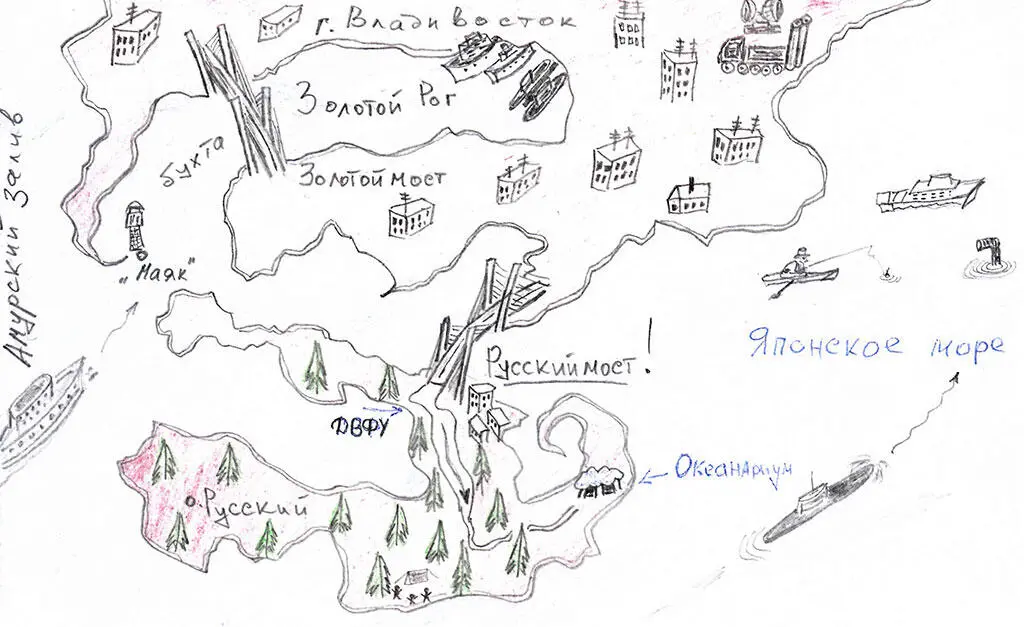 г. Владивосток
Золотой Рог
бухта
Золотой мост
Амурский Залив
„Маяк"
Японское море
Русский мост!
ДВФУ
Океанариум
о. Русский